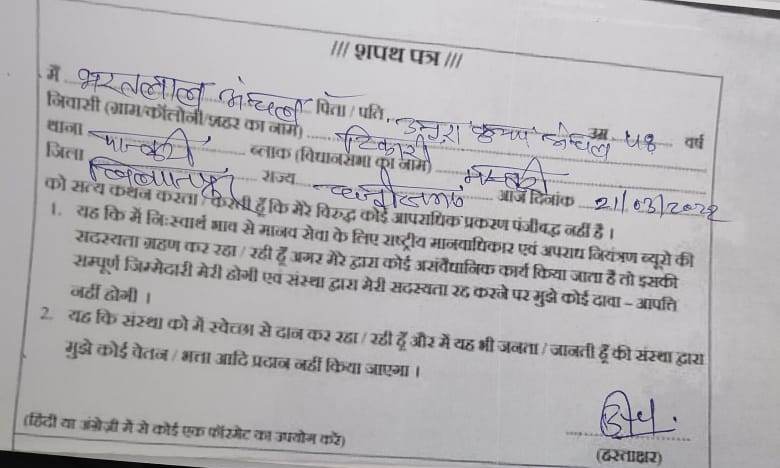 /// शपथ पत्र ///
मैं भरतलाल अंचल पिता / पति, कृष्ण अंचल उम्र 58 वर्ष
निवासी (ग्राम/कॉलोनी/शहर का नाम) टिकारी
थाना मस्तुरी ब्लाक (विधानसभा का नाम) मस्तुरी
जिला बिलासपुर राज्य छत्तीसगढ़ आज दिनांक 21/03/2022
को सत्य कथन करता / करती हूँ कि मेरे विरुद्ध कोई आपराधिक प्रकरण पंजीबद्ध नहीं है ।
1. यह कि मैं निःस्वार्थ भाव से मानव सेवा के लिए राष्ट्रीय मानवाधिकार एवं अपराध नियंत्रण ब्यूरो की
सदस्यता ग्रहण कर रहा / रही हूँ अगर मेरे द्वारा कोई असंवैधानिक कार्य किया जाता है तो इसकी
सम्पूर्ण जिम्मेदारी मेरी होगी एवं संस्था द्वारा मेरी सदस्यता रद्द करने पर मुझे कोई दावा - आपत्ति
नहीं होगी ।
2. यह कि संस्था को मैं स्वेच्छा से दान कर रहा / रही हूँ और में यह भी जनता / जानती हूँ की संस्था द्वारा
मुझे कोई वेतन / भत्ता आदि प्रदान नहीं किया जाएगा ।
(हिंदी या अंग्रेजी में से कोई एक फॉरमेट का उपयोग करें)
(हस्ताक्षर)